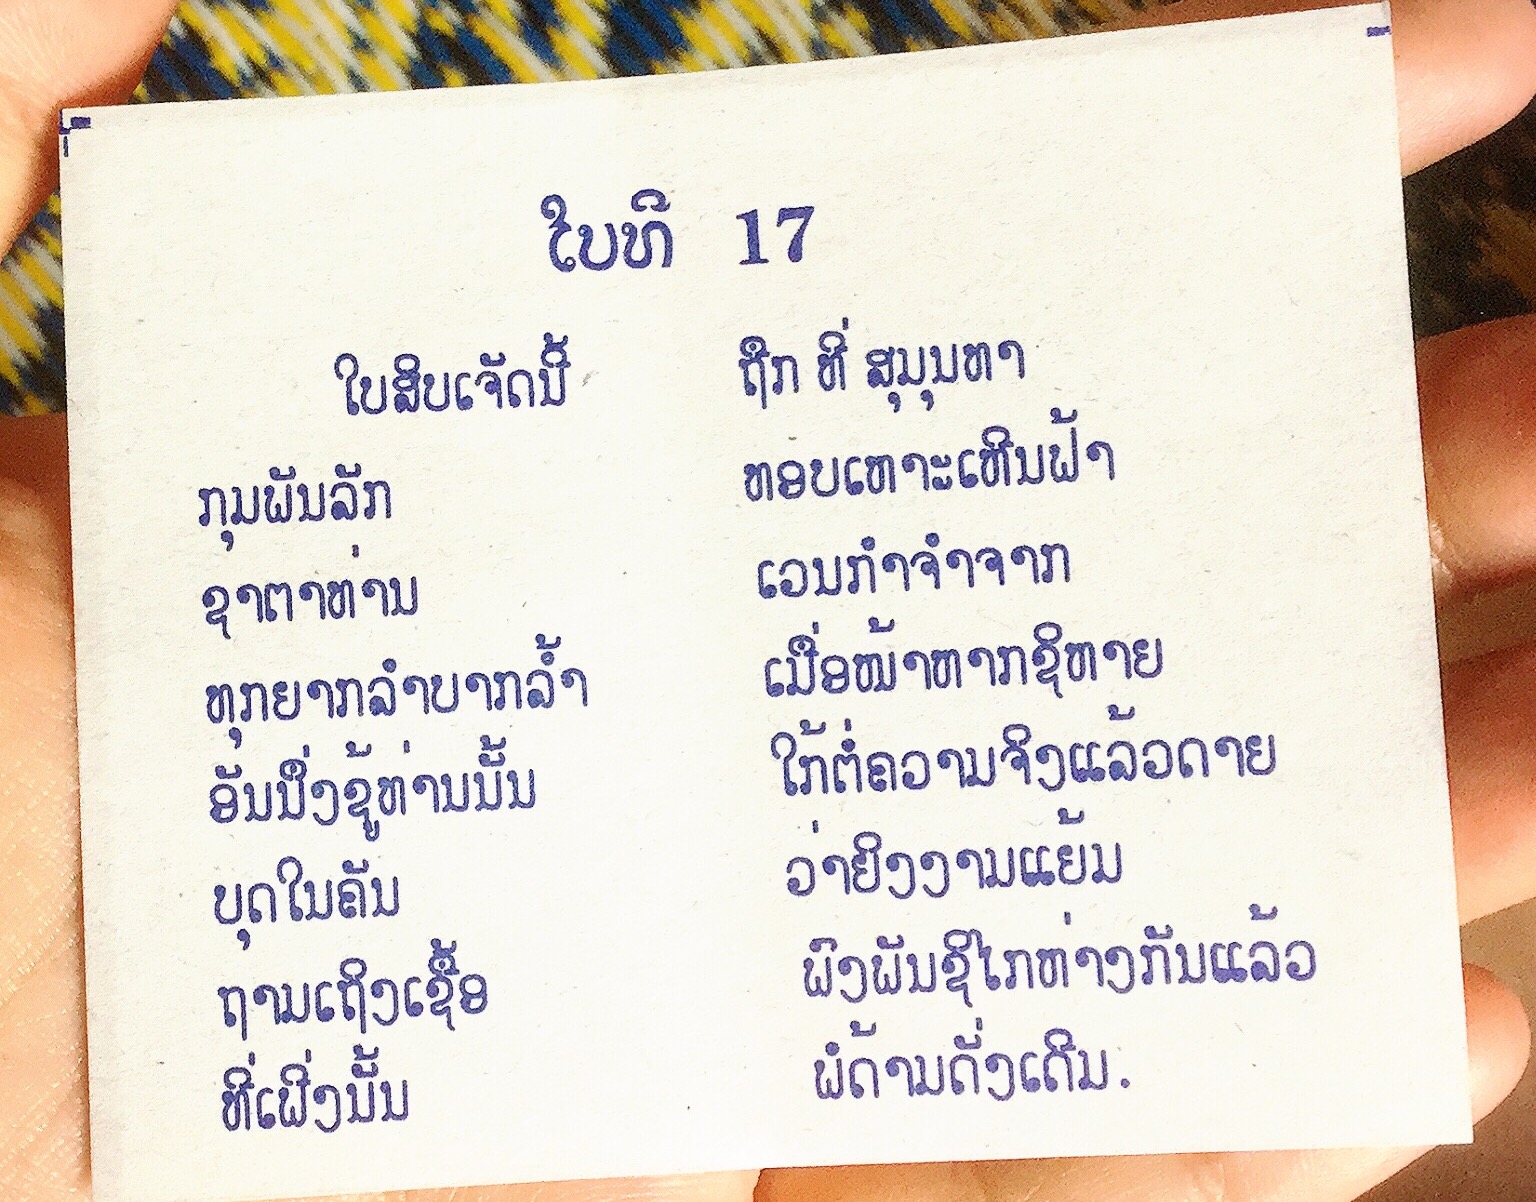 ໃບທີ 17
ໃບສິບເຈັດນີ້ ຖືກ ທີ່ ສຸມຸນທາ
ກຸມພັນລັກ ຫອບເຫາະເຫີນຟ້າ
ຊາຕາທ່ານ ເວນກຳຈຳຈາກ
ທຸກຍາກລຳບາກລ້ຳ ເມື່ອໜ້າຫາກຊິຫາຍ
ອັນນຶ່ງຊູ້ທ່ານນັ້ນ ໃກ້ຕໍ່ຄວາມຈິງແລ້ວດາຍ
ບຸດໃນຄັນ ວ່າຍິງງາມແຍ້ມ
ຖາມເຖິງເຊື້ອ ພົງພັນຊິໄກຫ່າງກັນແລ້ວ
ທີ່ເພິ່ງນັ້ນ ພໍດ້າມດັ່ງເດີມ.